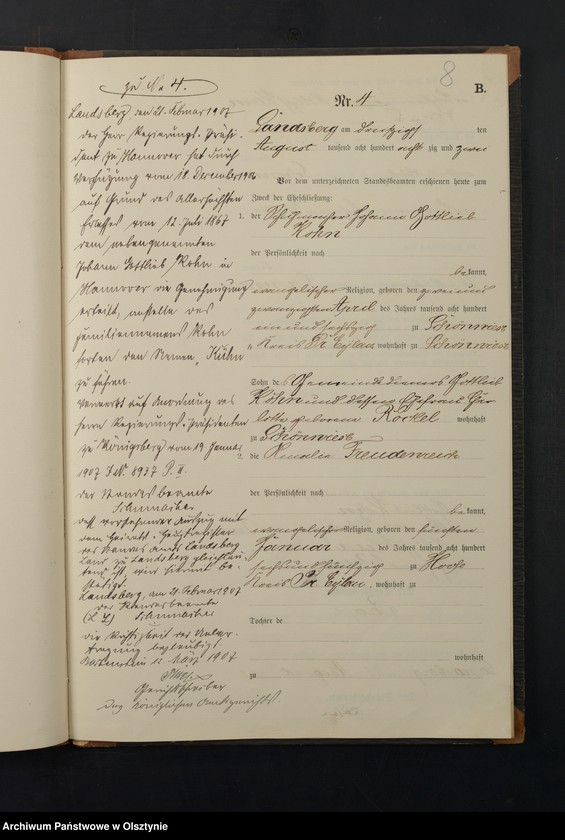 8
B.
zu No 4.
Landsberg, den 21. Februar 1907
Der Herr Regierungs-Präsi-
dent zu Hannover hat durch
Verfügung vom 18. Dezember 1906
auf Grund des Allerhöchsten
Erlasses vom 12. Juli 1867
dem nebengenannten
Johann Gottlieb Kohn in
Hannover die Genehmigung
erteilt, anstelle des
Familiennamens Kohn
fortan den Namen „Kühn
zu führen
Vermerkt auf Anordnung des
Herrn Regierungs-Präsidenten
zu Königsberg vom 19 Januar
1907 J. No. 8937 P. II
Der Standesbeamte
Daß vorstehender Auszug mit
dem Heirats-Hauptregister
des Standes-Amts Landsberg
Land zu Landsberg gleichlau-
tend ist, wird hiermit be-
stätigt.
Landsberg, am 21. Februar 1907
Der Standesbeamte
(L. S.)
Die Richtigkeit der Ueber-
tragung beglaubigt.
Bartenstein 12. März 1907
Gerichtsschreiber
des Königlichen Amtsgerichts.
Nr. 4
Landsberg am dreißigsten
August tausend acht hundert achtzig und zwei
Vor dem unterzeichneten Standesbeamten erschienen heute zum
Zweck der Eheschließung:
1. der Johann Gottlieb
Kohn
der Persönlichkeit nach
bekannt,
evangelischer Religion, geboren den zweiund
zwanzigsten April des Jahres tausend acht hundert
einundsechszig zu Schönwiese
Kreis Pr Eylau, wohnhaft zu Schönwiese
Sohn des Gemeindedieners Gottlieb
Kohn und dessen Ehefrau Char
lotte geborene Röckel wohnhaft
zu Schönwiese
2. die Amalie Freudenreich
der Persönlichkeit nach
bekannt,
evangelischer Religion, geboren den fünften
Januar des Jahres tausend acht hundert
sechsundfünfzig zu Hoofe
Kreis Pr Eylau, wohnhaft zu
Tochter de
wohnhaft
zu
Archiwum Państwowe w Olsztynie